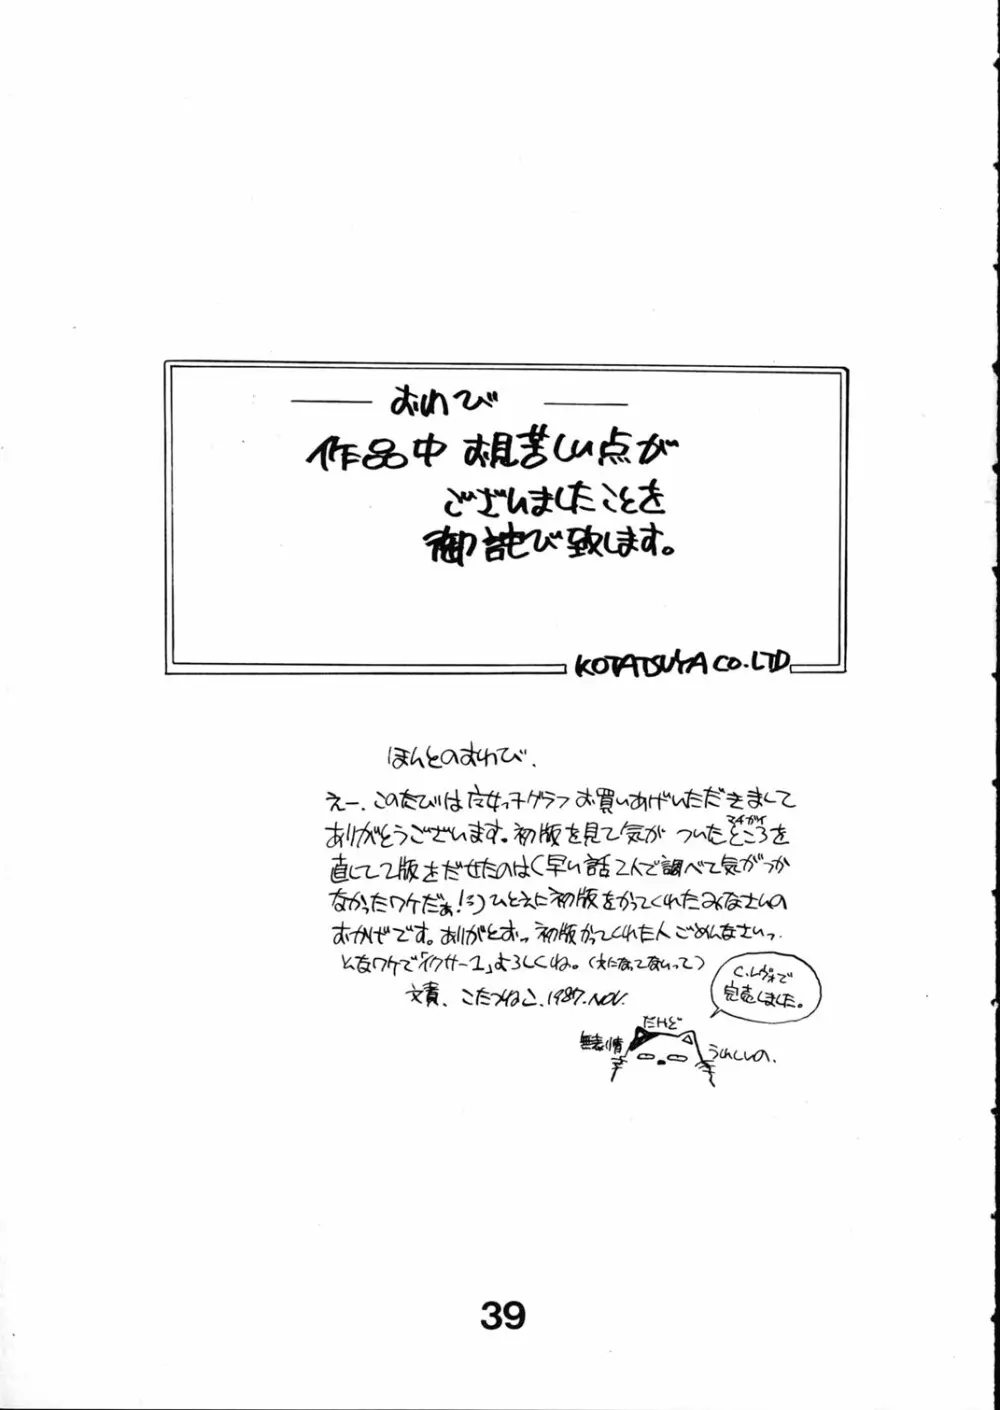 おわび
作品中お見苦しい点が
ございましたことを
御詫び致します。
KOTATSUYA CO.LTD
ほんとのおわび.
えー、このたびは グラフお買いあげいただきまして
マチガイ
ありがとうございます。初版を見て気がついたところを
直して2版をだせたのは(早い話2人で調べて気がつか
なかったワケだぁ!ミ)ひとえに初版をかってくれたみなさんの
おかげです。ありがとおっ 初版かってくれた人ごめんなさいっ
んなワケで「イクサー1」よろしくね。(えになってないって)
文責、こたつねこ、1987.NOV.
C.レヴォで
完売しました。
だけど
無表情
うれしいの、
39